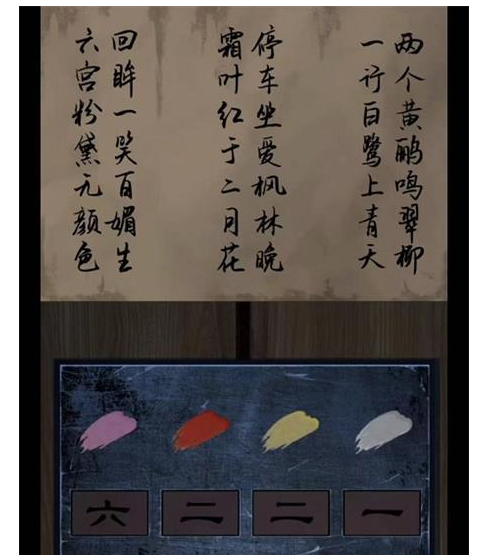 两个黄鹂鸣翠柳
一行白鹭上青天
停车坐爱枫林晚
霜叶红于二月花
回眸一笑百媚生
六宫粉黛无颜色
六 二 二 一